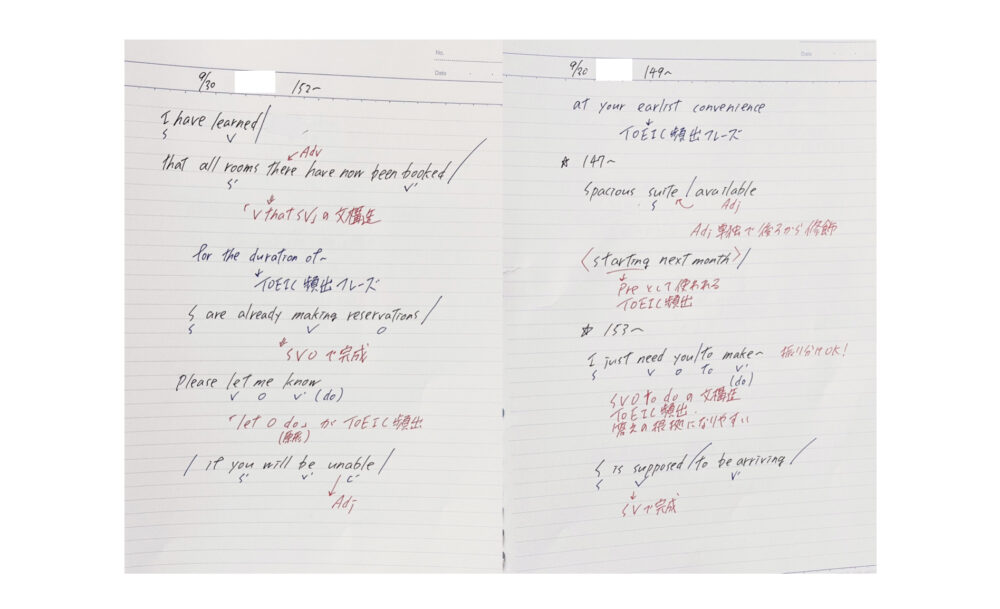 No.
Date
9/30 152~
I have learned/
S V
Adv
that all rooms there have now been booked/
S' V'
「V that SV」の文構造
for the duration of~
TOEIC 頻出フレーズ
S are already making reservations/
S V O
SVOで完成
Please let me know
V O V' (do)
「let O do」が TOEIC 頻出
(原形)
/ if you will be unable /
S' V' C'
Adj
Date
9/30 149~
at your earlist convenience
TOEIC 頻出フレーズ
☆ 147~
Spacious suite / available
S Adj
Adj 単独で後ろから修飾
〈starting next month〉/
Preとして使われる
TOEIC 頻出
☆ 153~
I just need you/to make~ 振り分けOK!
S V O to V'
(do)
SVO to do の文構造
TOEIC 頻出.
答えの根拠になりやすい
S is supposed/to be arriving/
S V V'
SVで完成